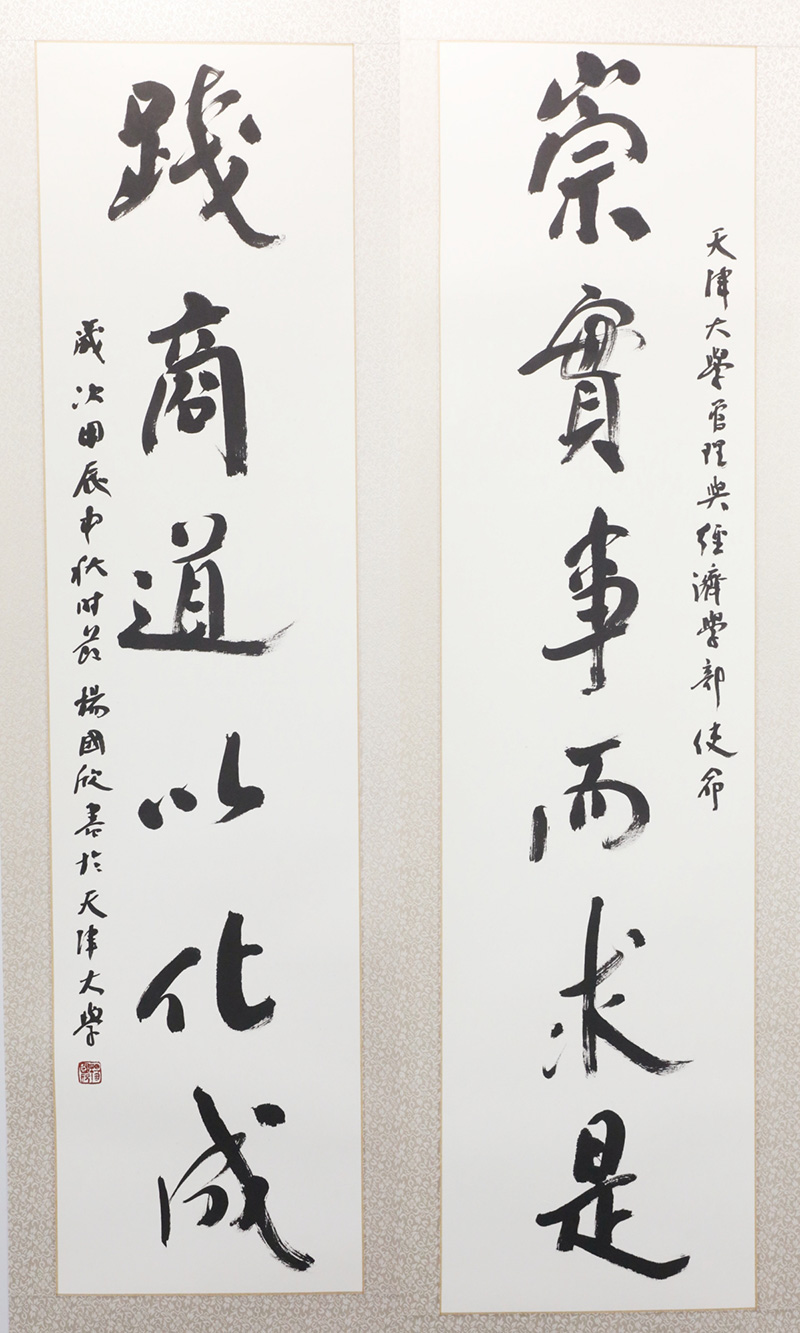 天津大學管理與經濟學部使命
崇實事而求是
踐商道以化成
歲次甲辰中秋时节 楊國欣書於天津大學